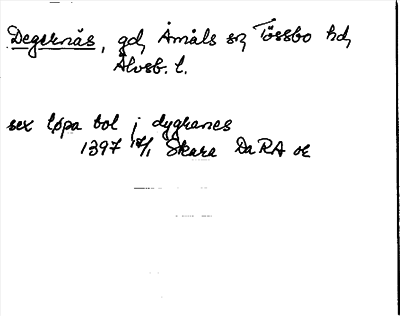 Degernäs, gd, Åmåls sn, Tössbo hd,
Älvsb. l.
sex løpa bol j dygranes
1397 17/1 Skara DaRA or